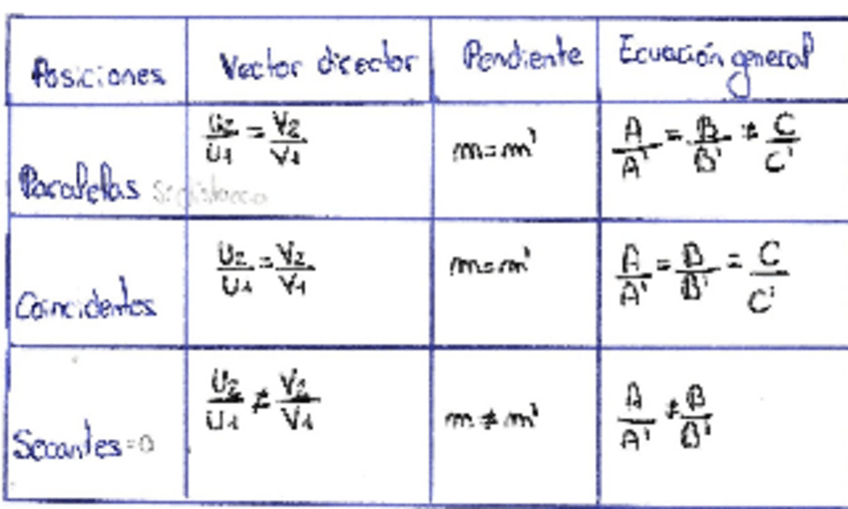 Posiciones Vector director Pendiente Ecuación general
Paralelas U2/U1 = V2/V1 m=m' A/A' = B/B' ≠ C/C'
Coincidentes U2/U1 = V2/V1 m=m' A/A' = B/B' = C/C'
Secantes=0 U2/U1 ≠ V2/V1 m≠m' A/A' ≠ B/B'